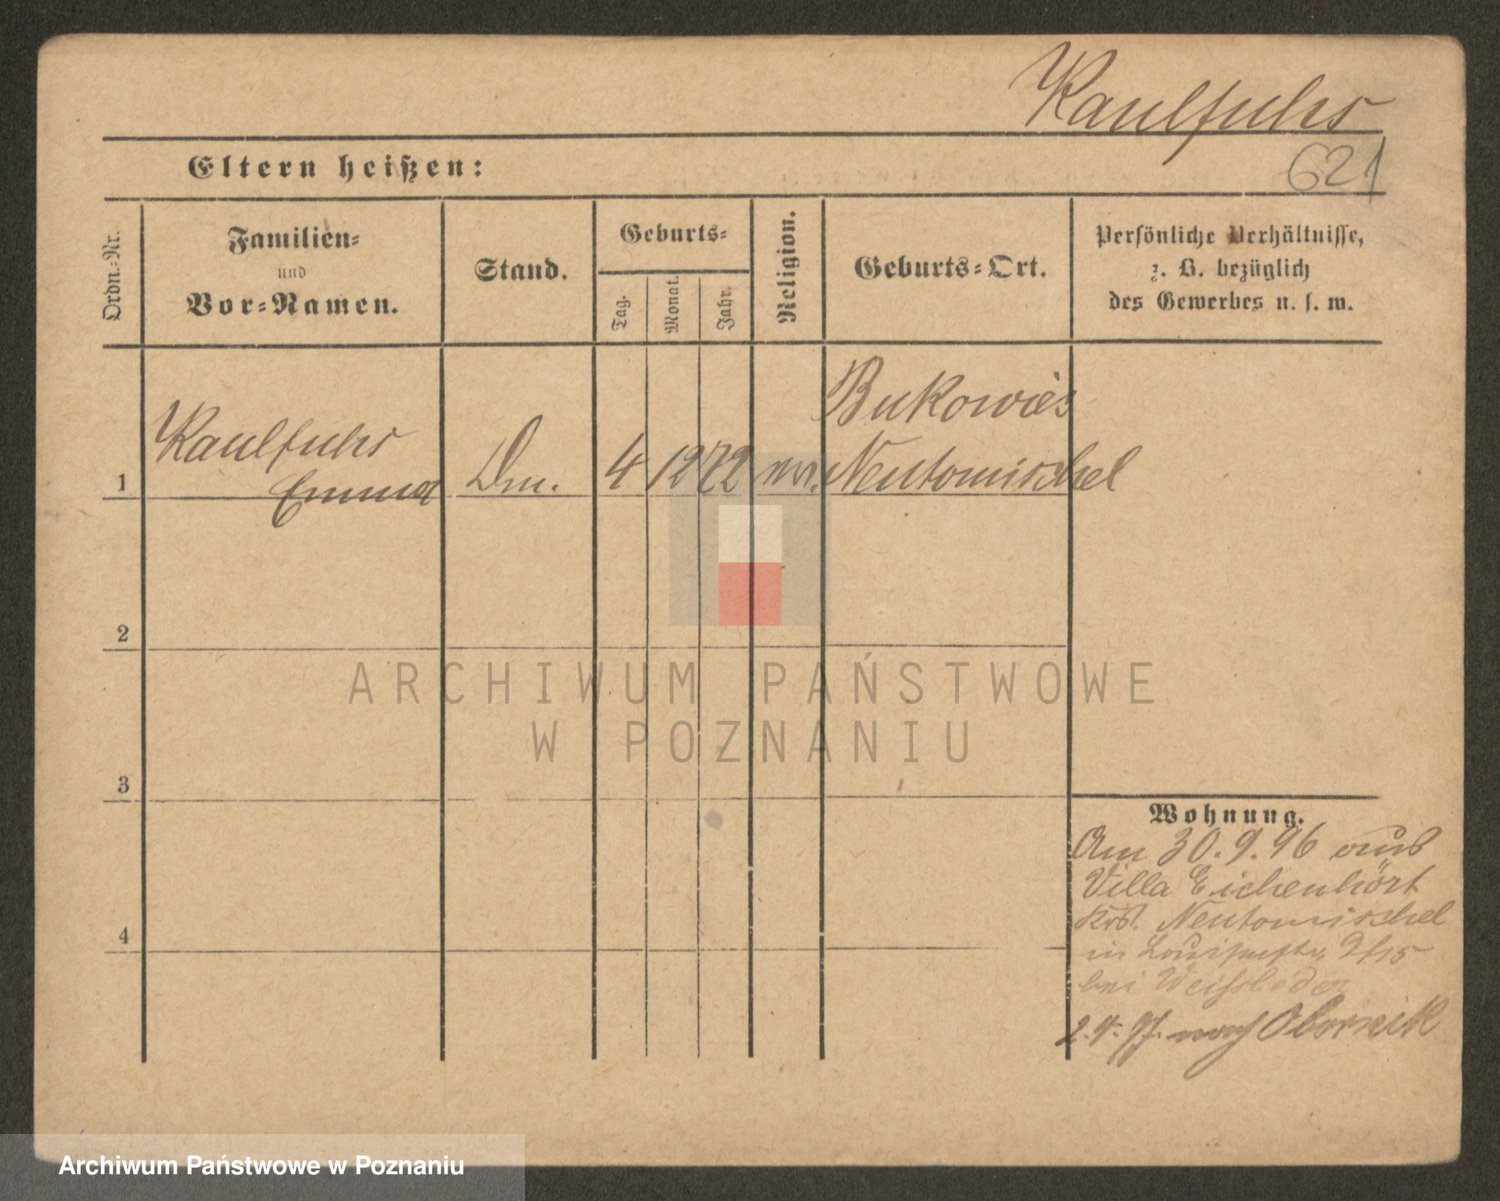 Kaulfuhs
621
Eltern heißen:
Ordn.-Nr.
Familien-
und
Vor-Namen.
Stand.
Geburts-
Tag.
Monat.
Jahr.
Religion.
Geburts-Ort.
Persönliche Verhältnisse,
z. B. bezüglich
des Gewerbes u. s. w.
1
Kaulfuhs
Emma
4
12
72
Bukowiec
Neutomischel
2
3
4
Wohnung.
Am 30.9.96 aus
Villa Eichenhört
Neutomischel
in
bei Weissleder
2.4.97. nach Obornik
ARCHIWUM PAŃSTWOWE
W POZNANIU
Archiwum Państwowe w Poznaniu